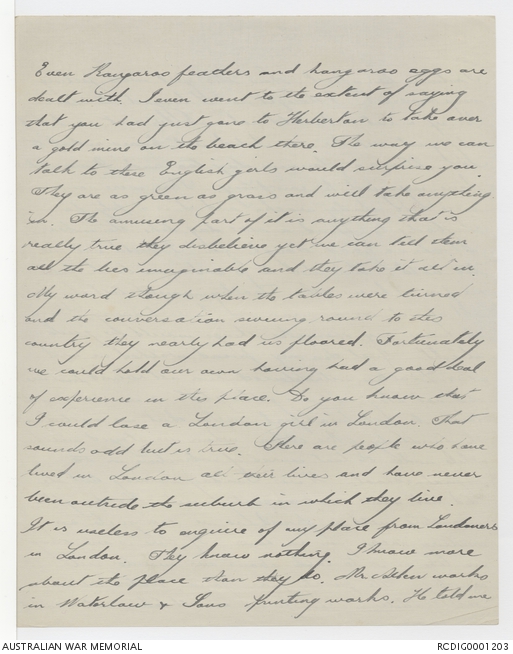 Even Kangaroo feathers and kangaroo eggs are
dealt with. I even went to the extent of saying
that you had just gone to Herberton to take over
a gold mine on the beach there. The way we can
talk to these English girls would surprise you.
They are as green as grass and will take anything
in. The amusing part of it is anything that is
really true they disbelieve yet we can tell them
all the lies imaginable and they take it all in.
My word though when the tables were turned
and the conversation swung round to this
country they nearly had us floored. Fortunately
we could hold our own having had a good deal
of experience in this place. Do you know that
I could lose a London girl in London. That
sounds odd but is true. There are people who have
lived in London all their lives and have never
been outside the suburb in which they live.
It is useless to enquire of any place from Londoners
in London. They know nothing. I know more
about the place than they do. Mr works
in Waterlow & Sons printing works. He told me
AUSTRALIAN WAR MEMORIAL
RCDIG0001203